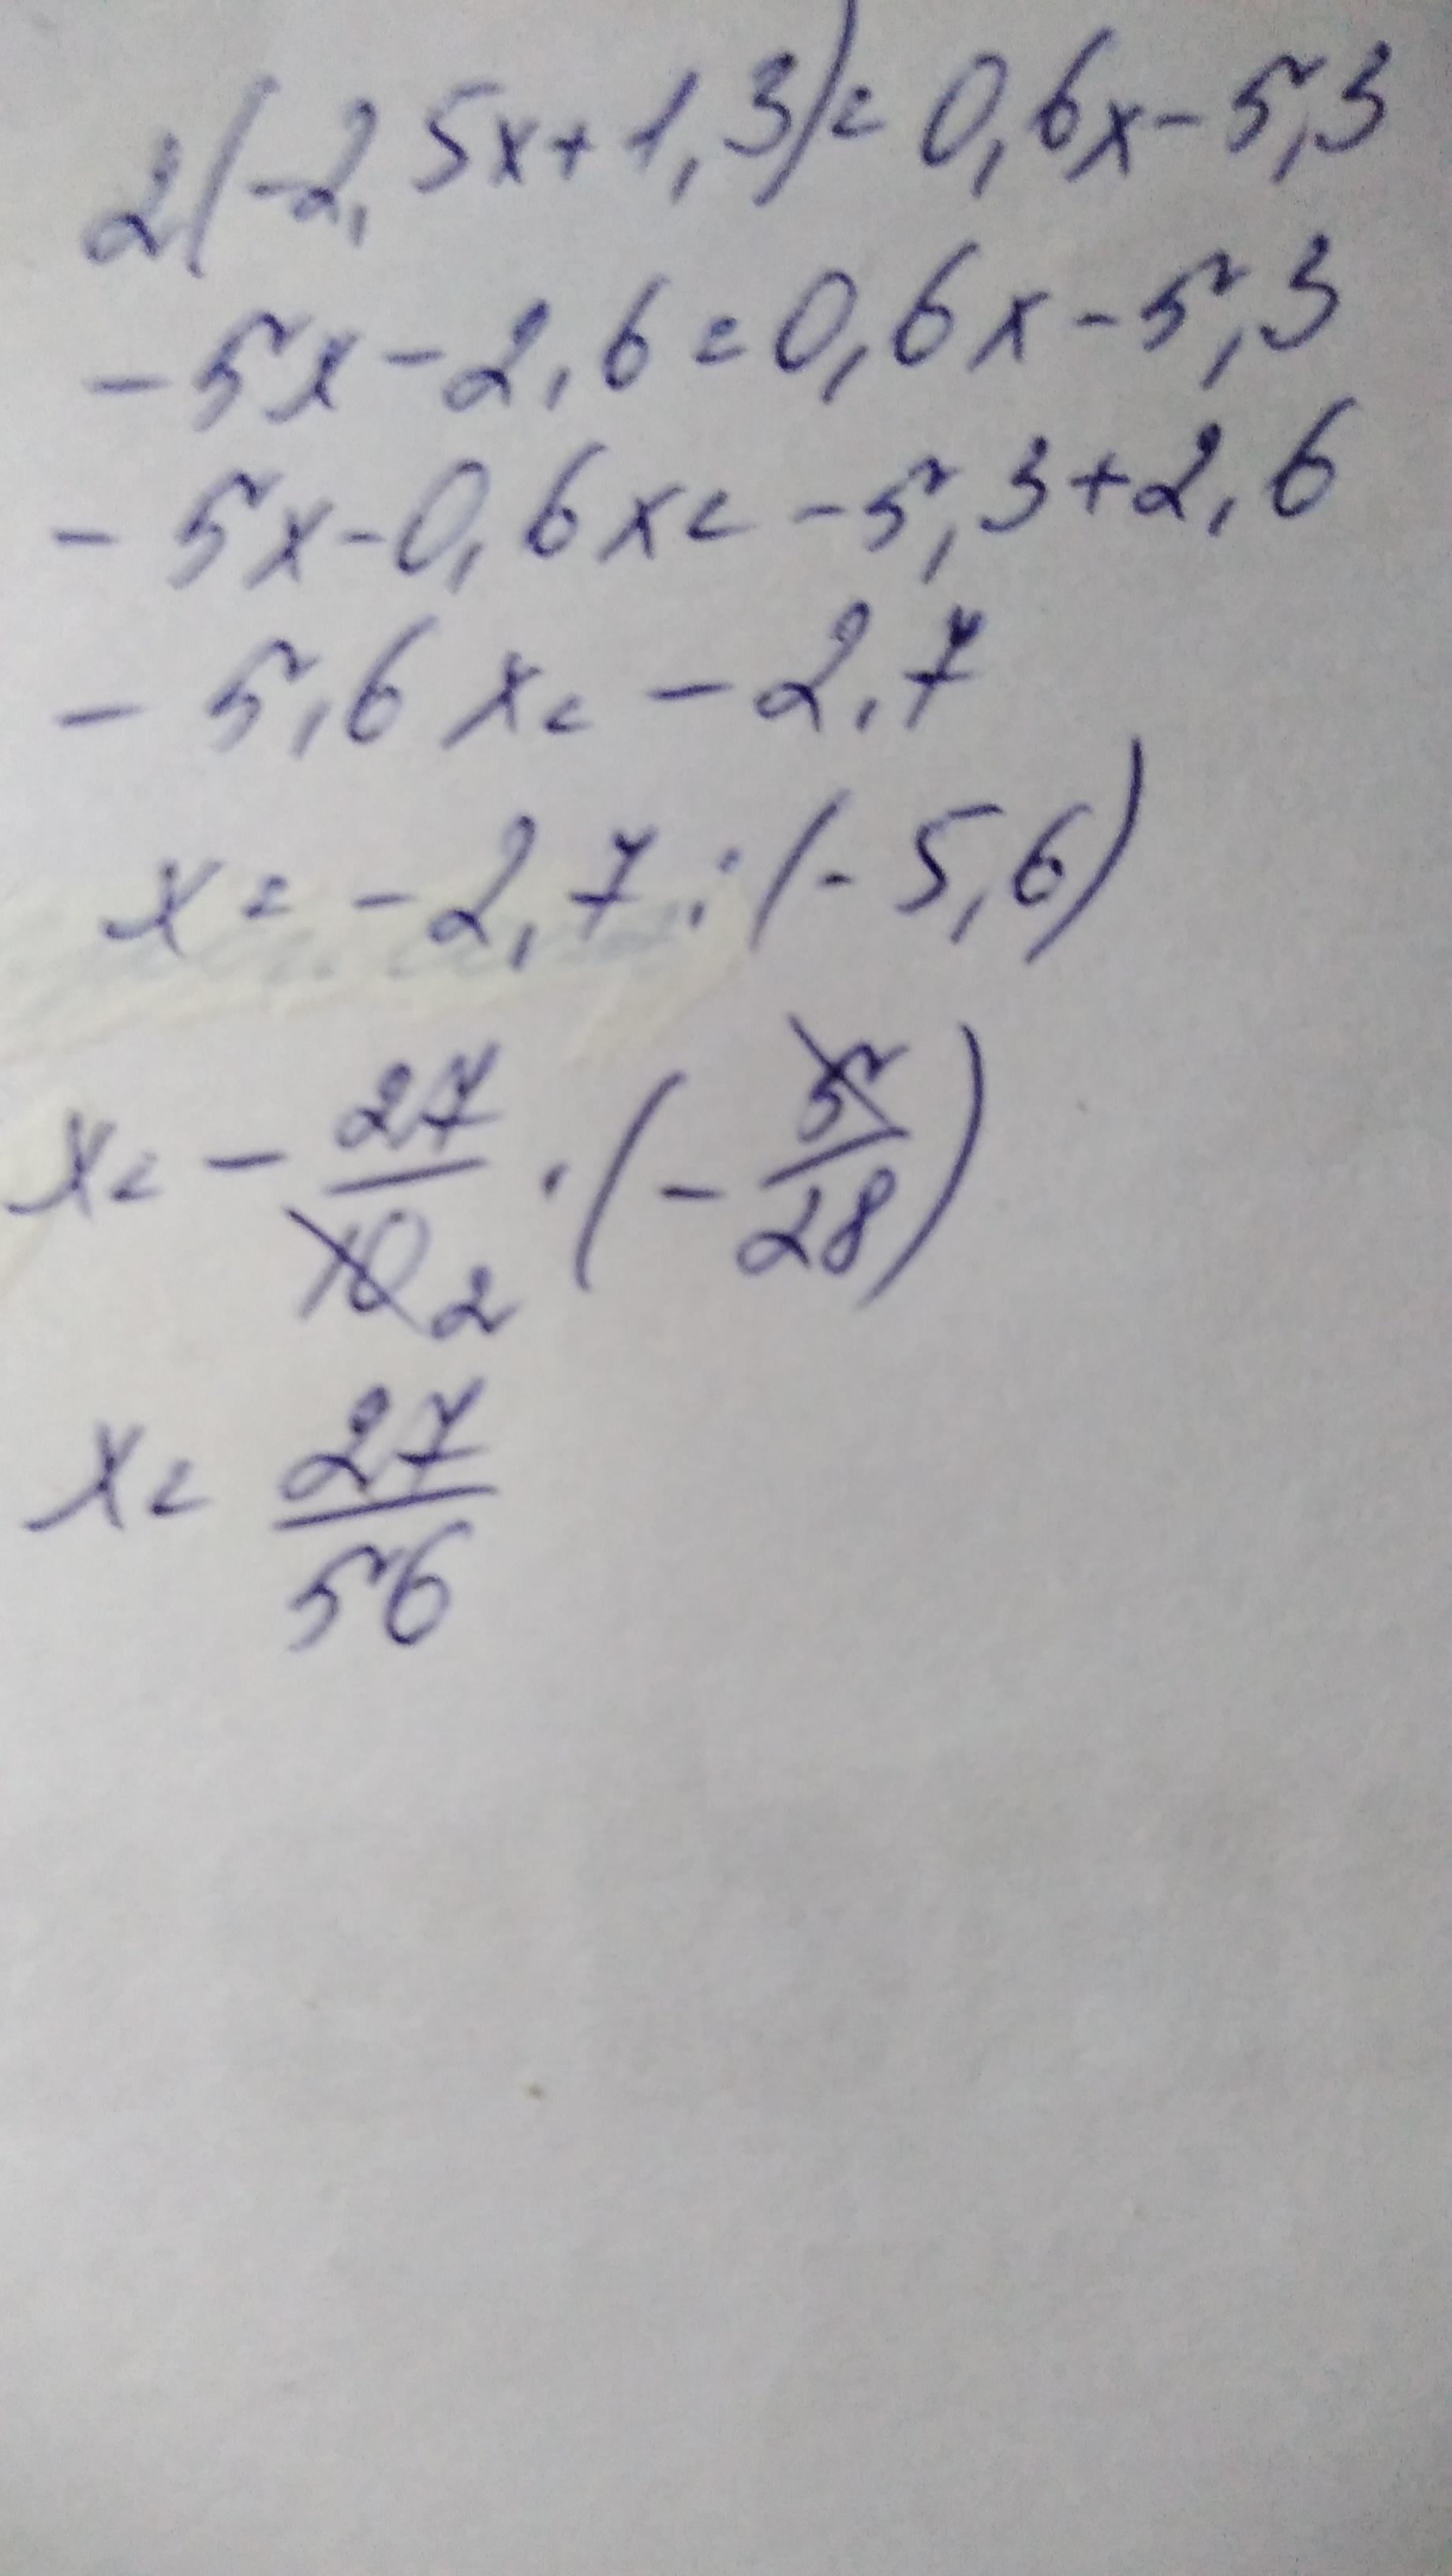 2(-2,5x+1,3)=0,6x-5,3
-5x-2,6=0,6x-5,3
-5x-0,6x=-5,3+2,6
-5,6x=-2,7
x=-2,7:(-5,6)
x=-27/10 2·(-5/28)
x=27/56